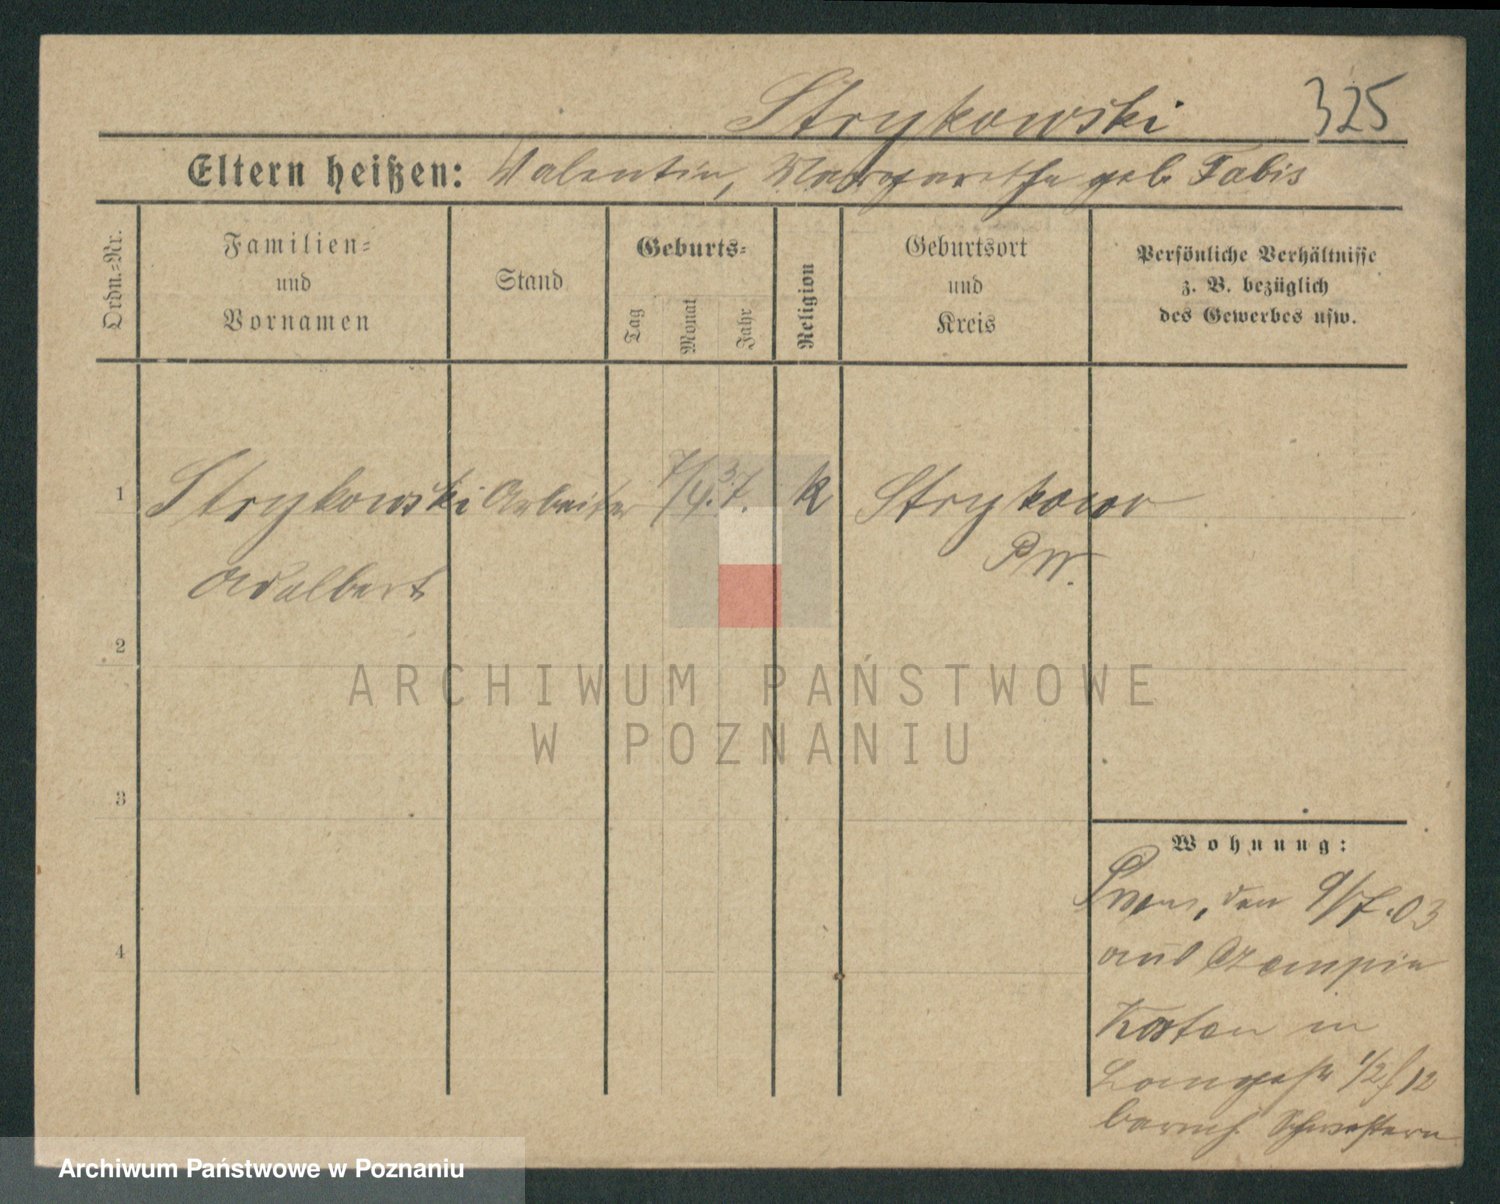 Strykowski 325
Eltern heißen: Valentin, Margarethe geb Fabis
Ordn.-Nr.
Familien-
und
Vornamen
Stand
Geburts-
Tag
Monat
Jahr
Religion
Geburtsort
und
Kreis
Persönliche Verhältnisse
z. B. bezüglich
des Gewerbes usw.
1 Strykowski Arbeiter 7/4.37. k Strykowo
Adalbert PW.
2
ARCHIWUM PAŃSTWOWE
W POZNANIU
3
Wohnung:
Posen, den 9/7.03
aus Czempin
Kosten in
Langestr 1/2/12
barmh. Schwestern
4
Archiwum Państwowe w Poznaniu